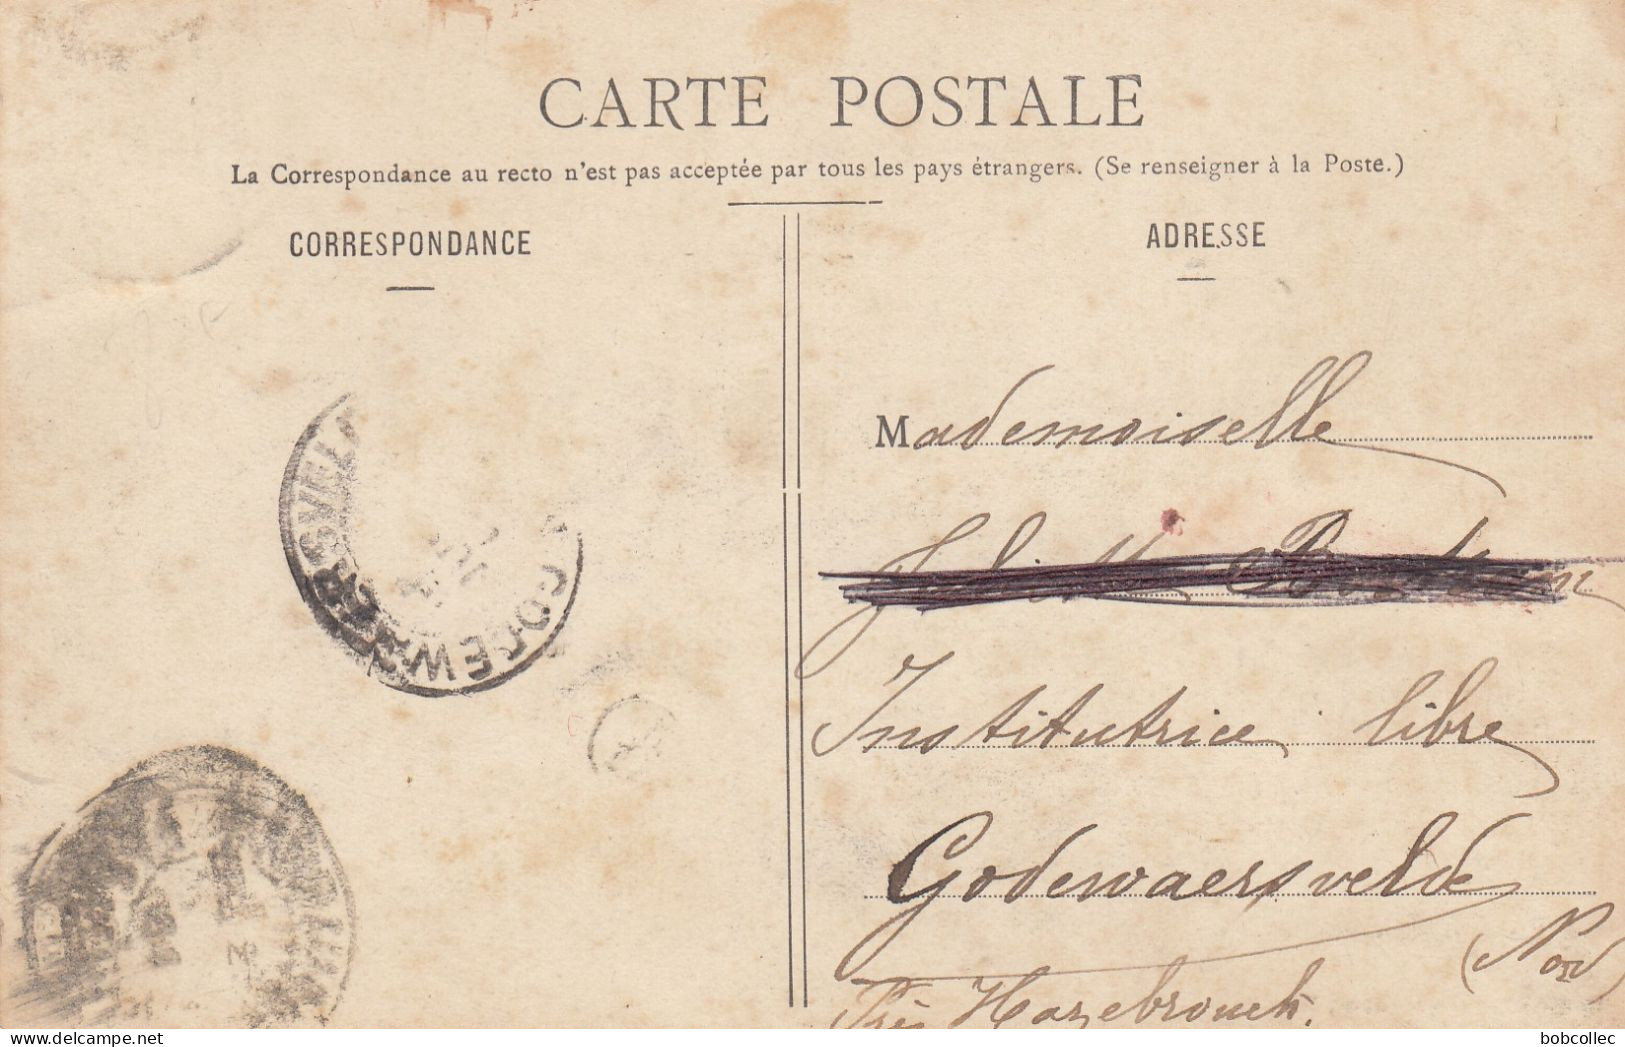 CARTE POSTALE
La Correspondance au recto n'est pas acceptée par tous les pays étrangers. (Se renseigner à la Poste.)
CORRESPONDANCE
ADRESSE
Mademoiselle
Institutrice libre
Godewaersvelde
(Nord)
Près Hazebrouck.
GODEWAERSVELDE
bobcollec